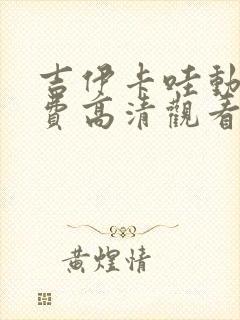 吉伊卡哇動
費高清觀看
黃煌情